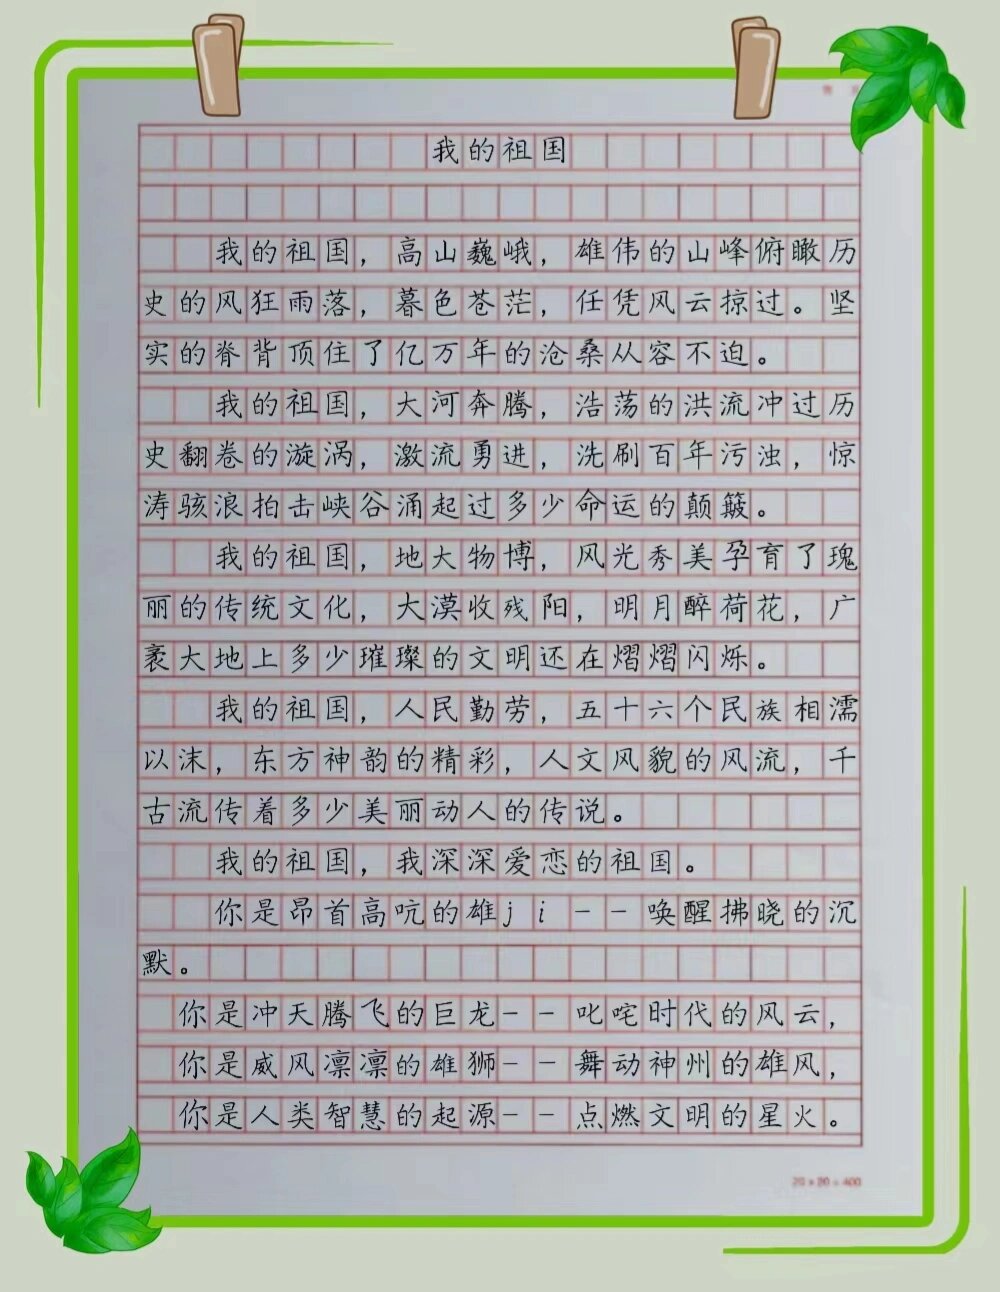 我的祖国
我的祖国，高山巍峨，雄伟的山峰俯瞰历
史的风狂雨落，暮色苍茫，任凭风云掠过。坚
实的脊背顶住了亿万年的沧桑从容不迫。
我的祖国，大河奔腾，浩荡的洪流冲过历
史翻卷的漩涡，激流勇进，洗刷百年污浊，惊
涛骇浪拍击峡谷涌起过多少命运的颠簸。
我的祖国，地大物博，风光秀美孕育了瑰
丽的传统文化，大漠收残阳，明月醉荷花，广
袤大地上多少璀璨的文明还在熠熠闪烁。
我的祖国，人民勤劳，五十六个民族相濡
以沫，东方神韵的精彩，人文风貌的风流，千
古流传着多少美丽动人的传说。
我的祖国，我深深爱恋的祖国。
你是昂首高吭的雄ji--唤醒拂晓的沉
默。
你是冲天腾飞的巨龙--叱咤时代的风云，
你是威风凛凛的雄狮--舞动神州的雄风，
你是人类智慧的起源--点燃文明的星火。
20×20=400